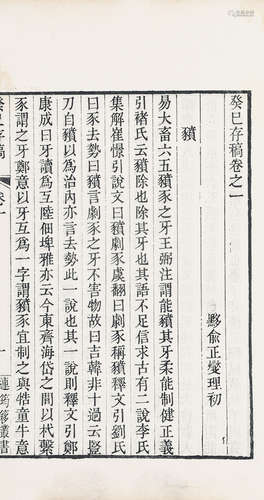 癸巳存稿卷之一
黟俞正燮理初
豶
易大畜六五豶豕之牙王弼注謂能豶其牙柔能制健正義
引褚氏云豶除也除其牙也其語不足信求古有二說李氏
集解崔憬引說文曰豶劇豕虞翻曰劇豕稱豶釋文引劉氏
曰豕去勢曰豶言劇豕之牙不害物故曰吉韓非十過云豎
刀自豶以為治內亦言去勢此一說也其一說則釋文引鄭
康成曰牙讀為互陸佃埤雅亦云今東齊海岱之間以杙繫
豕謂之牙鄭意以牙互為一字謂豶豕宜制之與牿童牛意
癸巳存稿
卷一
一
連筠簃叢書